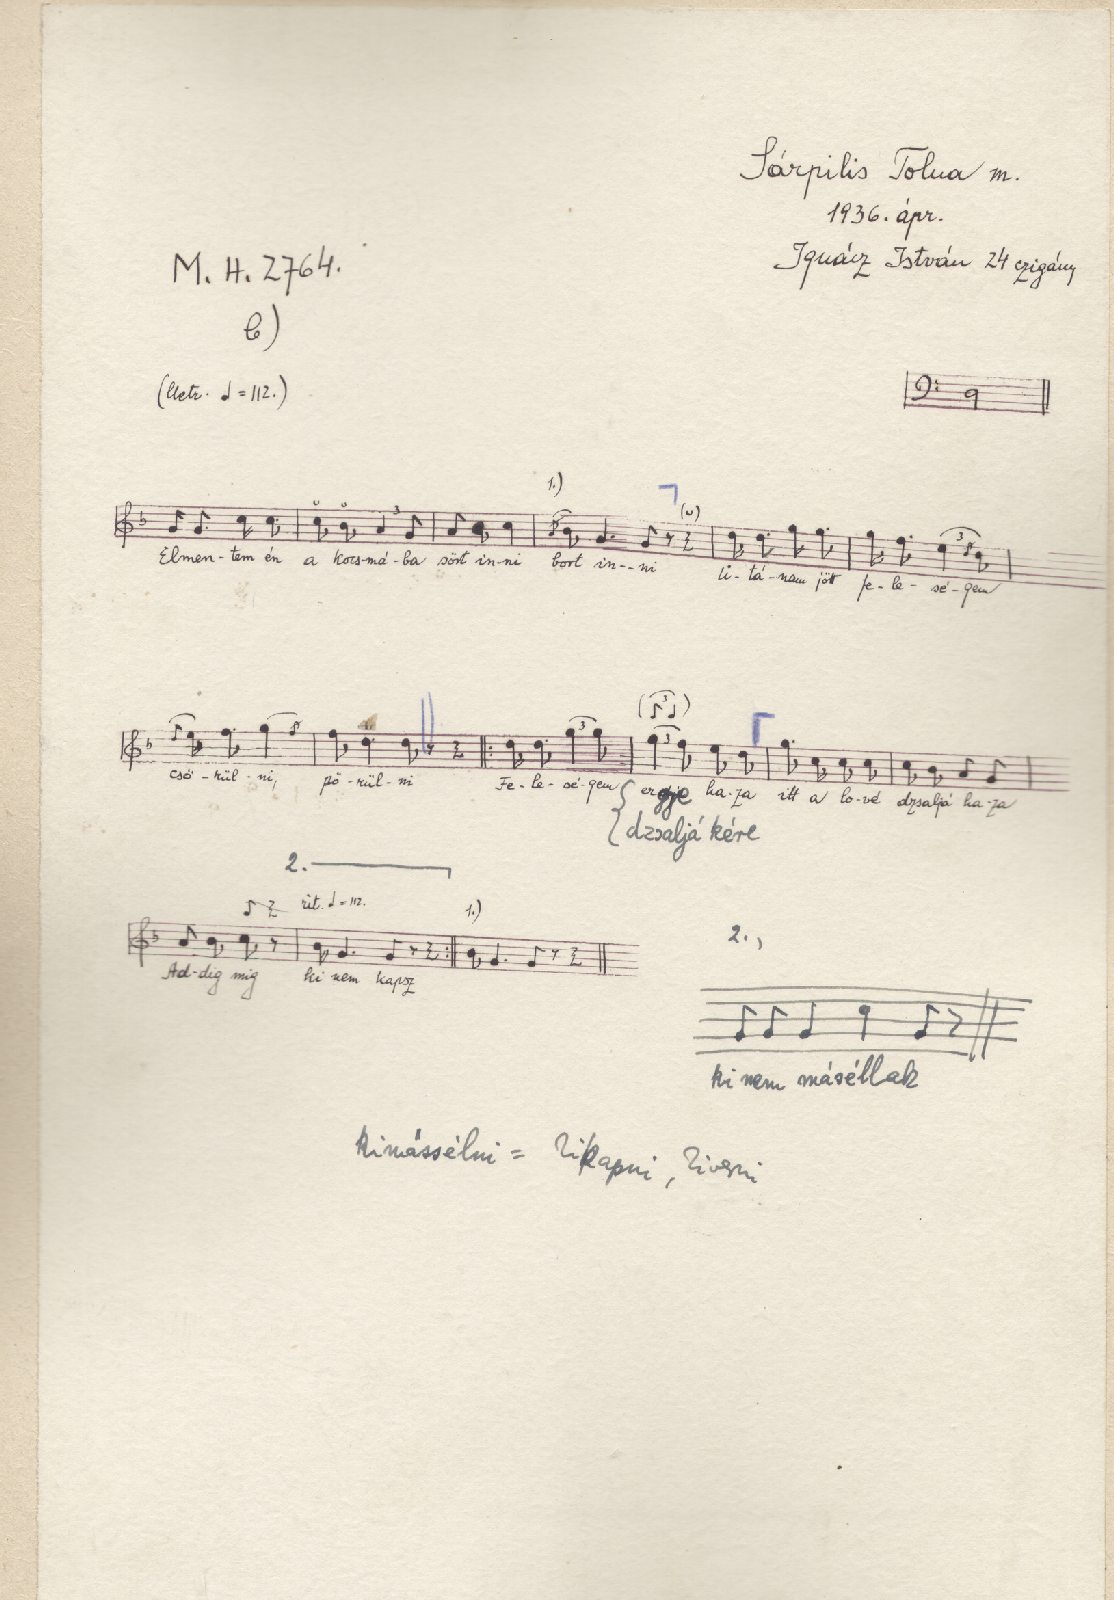 Sárpilis Tolna m.
1936. ápr.
Ignácz István 24 czigány
M. H. 2764.
b)
(Metr. ♩ = 112.)
1.) (υ)
3 3
Elmen-tem én a kocs-má-ba sört in-ni bort in--ni U-tá-nam jött fe-le-sé-gem
(3)
3 3
csö-röl-ni, pö-röl-ni Fe-le-sé-gem ergye ha-za itt a lo-vé dzsaljá ha-za
dzsaljá kére
2.
rit. ♩ = 112. 1.)
Ad-dig mig ki nem kapsz
2.,
ki nem máséllak
kimássélni = kikapni,